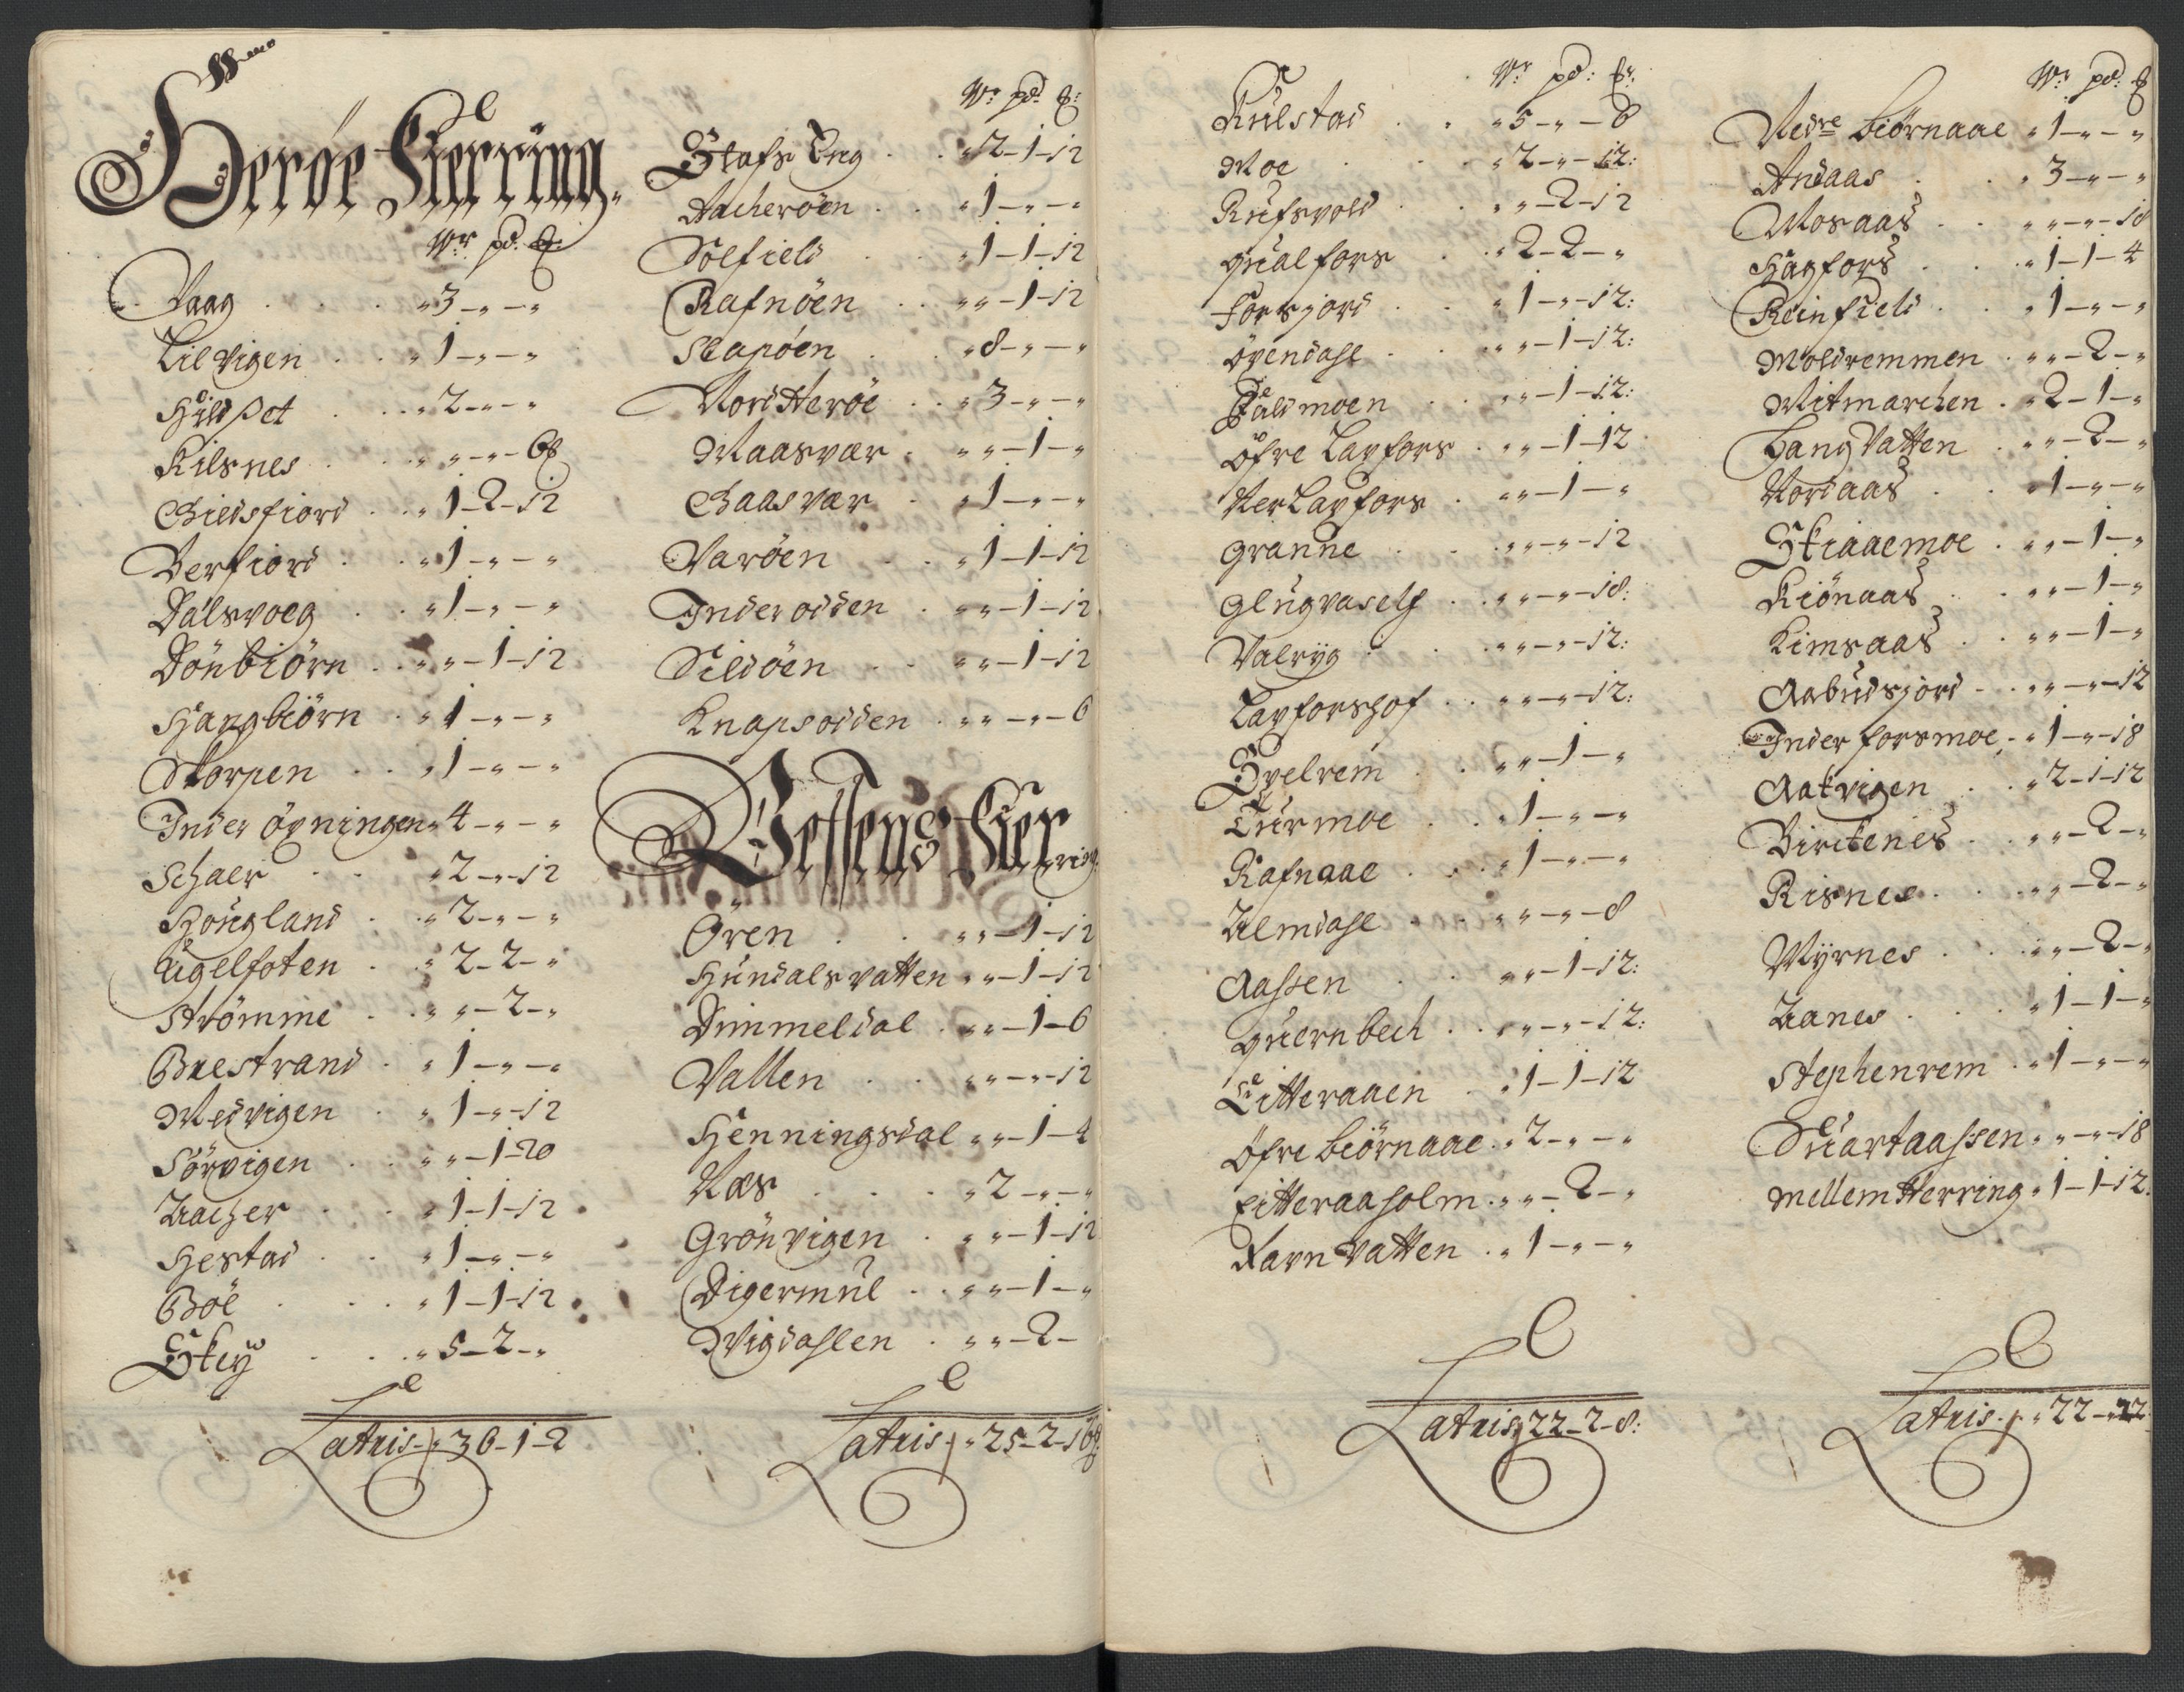 Herøe Fierring.
Wr pd: ℔:
Vaag . . . „3-„-„
Lilvigen . . „1-„-„
Huldset . . „2-„-„
Kilsnes . . „„-„-6
Gieldsfiord . . „1-2-12
Berfiord . . „1-„-„
Dalsvoeg . . „1-„-„
Dönbiörn . . „„-1-12
Hangbiörn . „1-„-„
Skorpen . . „1-„-„
Inder öyningen „4-„-„
Schaer . . „2-„-12
Hougland . . „2-„-„
Ugelfoten . . „2-2-„
Strömme . . „„-2-„
Baestrand . „1-„-„
Medvigen . „1-„-12
Sörvigen . . „„-1-20
Aacher . . „1-1-12
Hestad . . „1-„-„
Böe . . . „1-1-12
Skey . . . „5-2-„
Latris „36-1-2
Wr pd: ℔:
Stafs Eng . . „2-1-12
Aacheröen . . „1-„-„
Solfield . „1-1-12
Rafnöen . . „„-1-12
Slapöen . . „8-„-„
Nord Heröe . . „3-„-„
Maasvær . „„-1-„
Gaasvær . „1-„-„
Varöen . . „1-1-12
Inderodden . „„-1-12
Sildöen . . „„-1-12
Knapsodden . „„-„-6
Vefsens Fierring.
Ören . . „„-1-12
Hundalsvatten „„-1-12
Dimmeldal . „„-1-6
Vallen . . „„-„-12
Henningsdal „„-1-4
Næs . . . „2-„-„
Grönvigen . „„-1-12
Digermul . . „„-1-„
Vigdahlen . „„-2-
Latris „25-2-16
Wr pd: ℔:
Kulstad . . „5-„-6
Moe . . . „2-„-12:
Rufsvold . . „„-2-12
Qualfors . „2-2-„
Forsjord . . „1-„-12:
Öyendahl . . „„-1-12:
Fælmoen . . „„-1-12:
Öfre Layfors . „„-1-12
Ner Layfors . „„-1-„
Granne . . „„-„-12
Glugvaself . . „„-„-18:
Valryg . . „„-„-12:
Layforshof . . „„-„-12:
Spelrem . . „„-1-„
Turmoe . . „1-„-„
Rafnaae . . . „1-„-„
Almdahl . . „„-„-8
Aassen . . „„-1-12:
Quernbech . . „„-„-12:
Litteraaen . „1-1-12
Öfre Biörnaae . „2-„-„
Litteraaholm . „„-2-„
Favnvatten . „1-„-„
Latris „22-2-8:
Wr pd: ℔
Nedre Biörnaae „1-„-„
Andaas . . „3-„-„
Mosaas . . „„-„-18
Hagfors . . „1-1-4
Reinfield . . „1-„-„
Moldremmen . „„-2-„
Mitmarchen . „2-1-„
Langvatten . „„-2-„
Nordaas . . „1-„-„
Skiaaemoe . „„-1-„
Kiönaas . . „„-1-„
Kimsaas . „„-1-„
Aabudsjord . . „„-„-12
Inder forsmoe . „1-„-18
Aakvigen . . „2-1-12
Birckenes . . „„-2-„
Risnes . . „„-2-„
Myrnes . . „„-2-„
Aanes . . . „1-1-„
Stephenrem . „1-„-„
Suartaassen . „„-„-18
Mellem Herring „1-1-12.
Latris „22-„-22